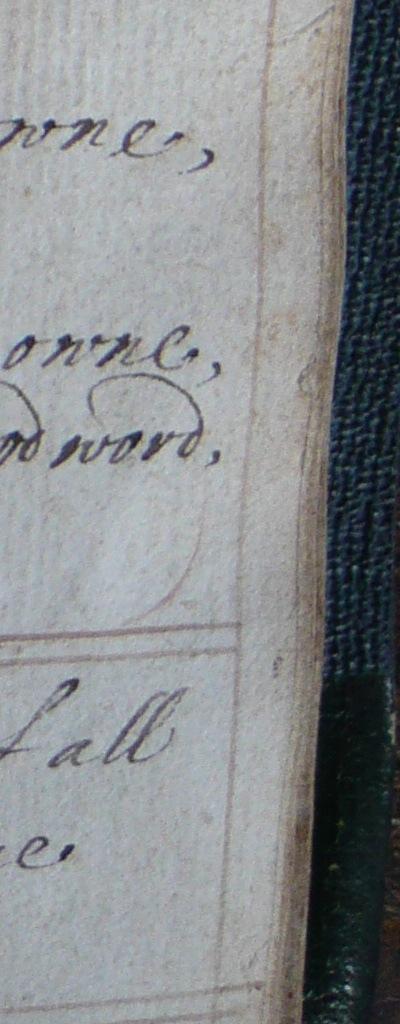 owne,
owne,
od word,
f all
e.